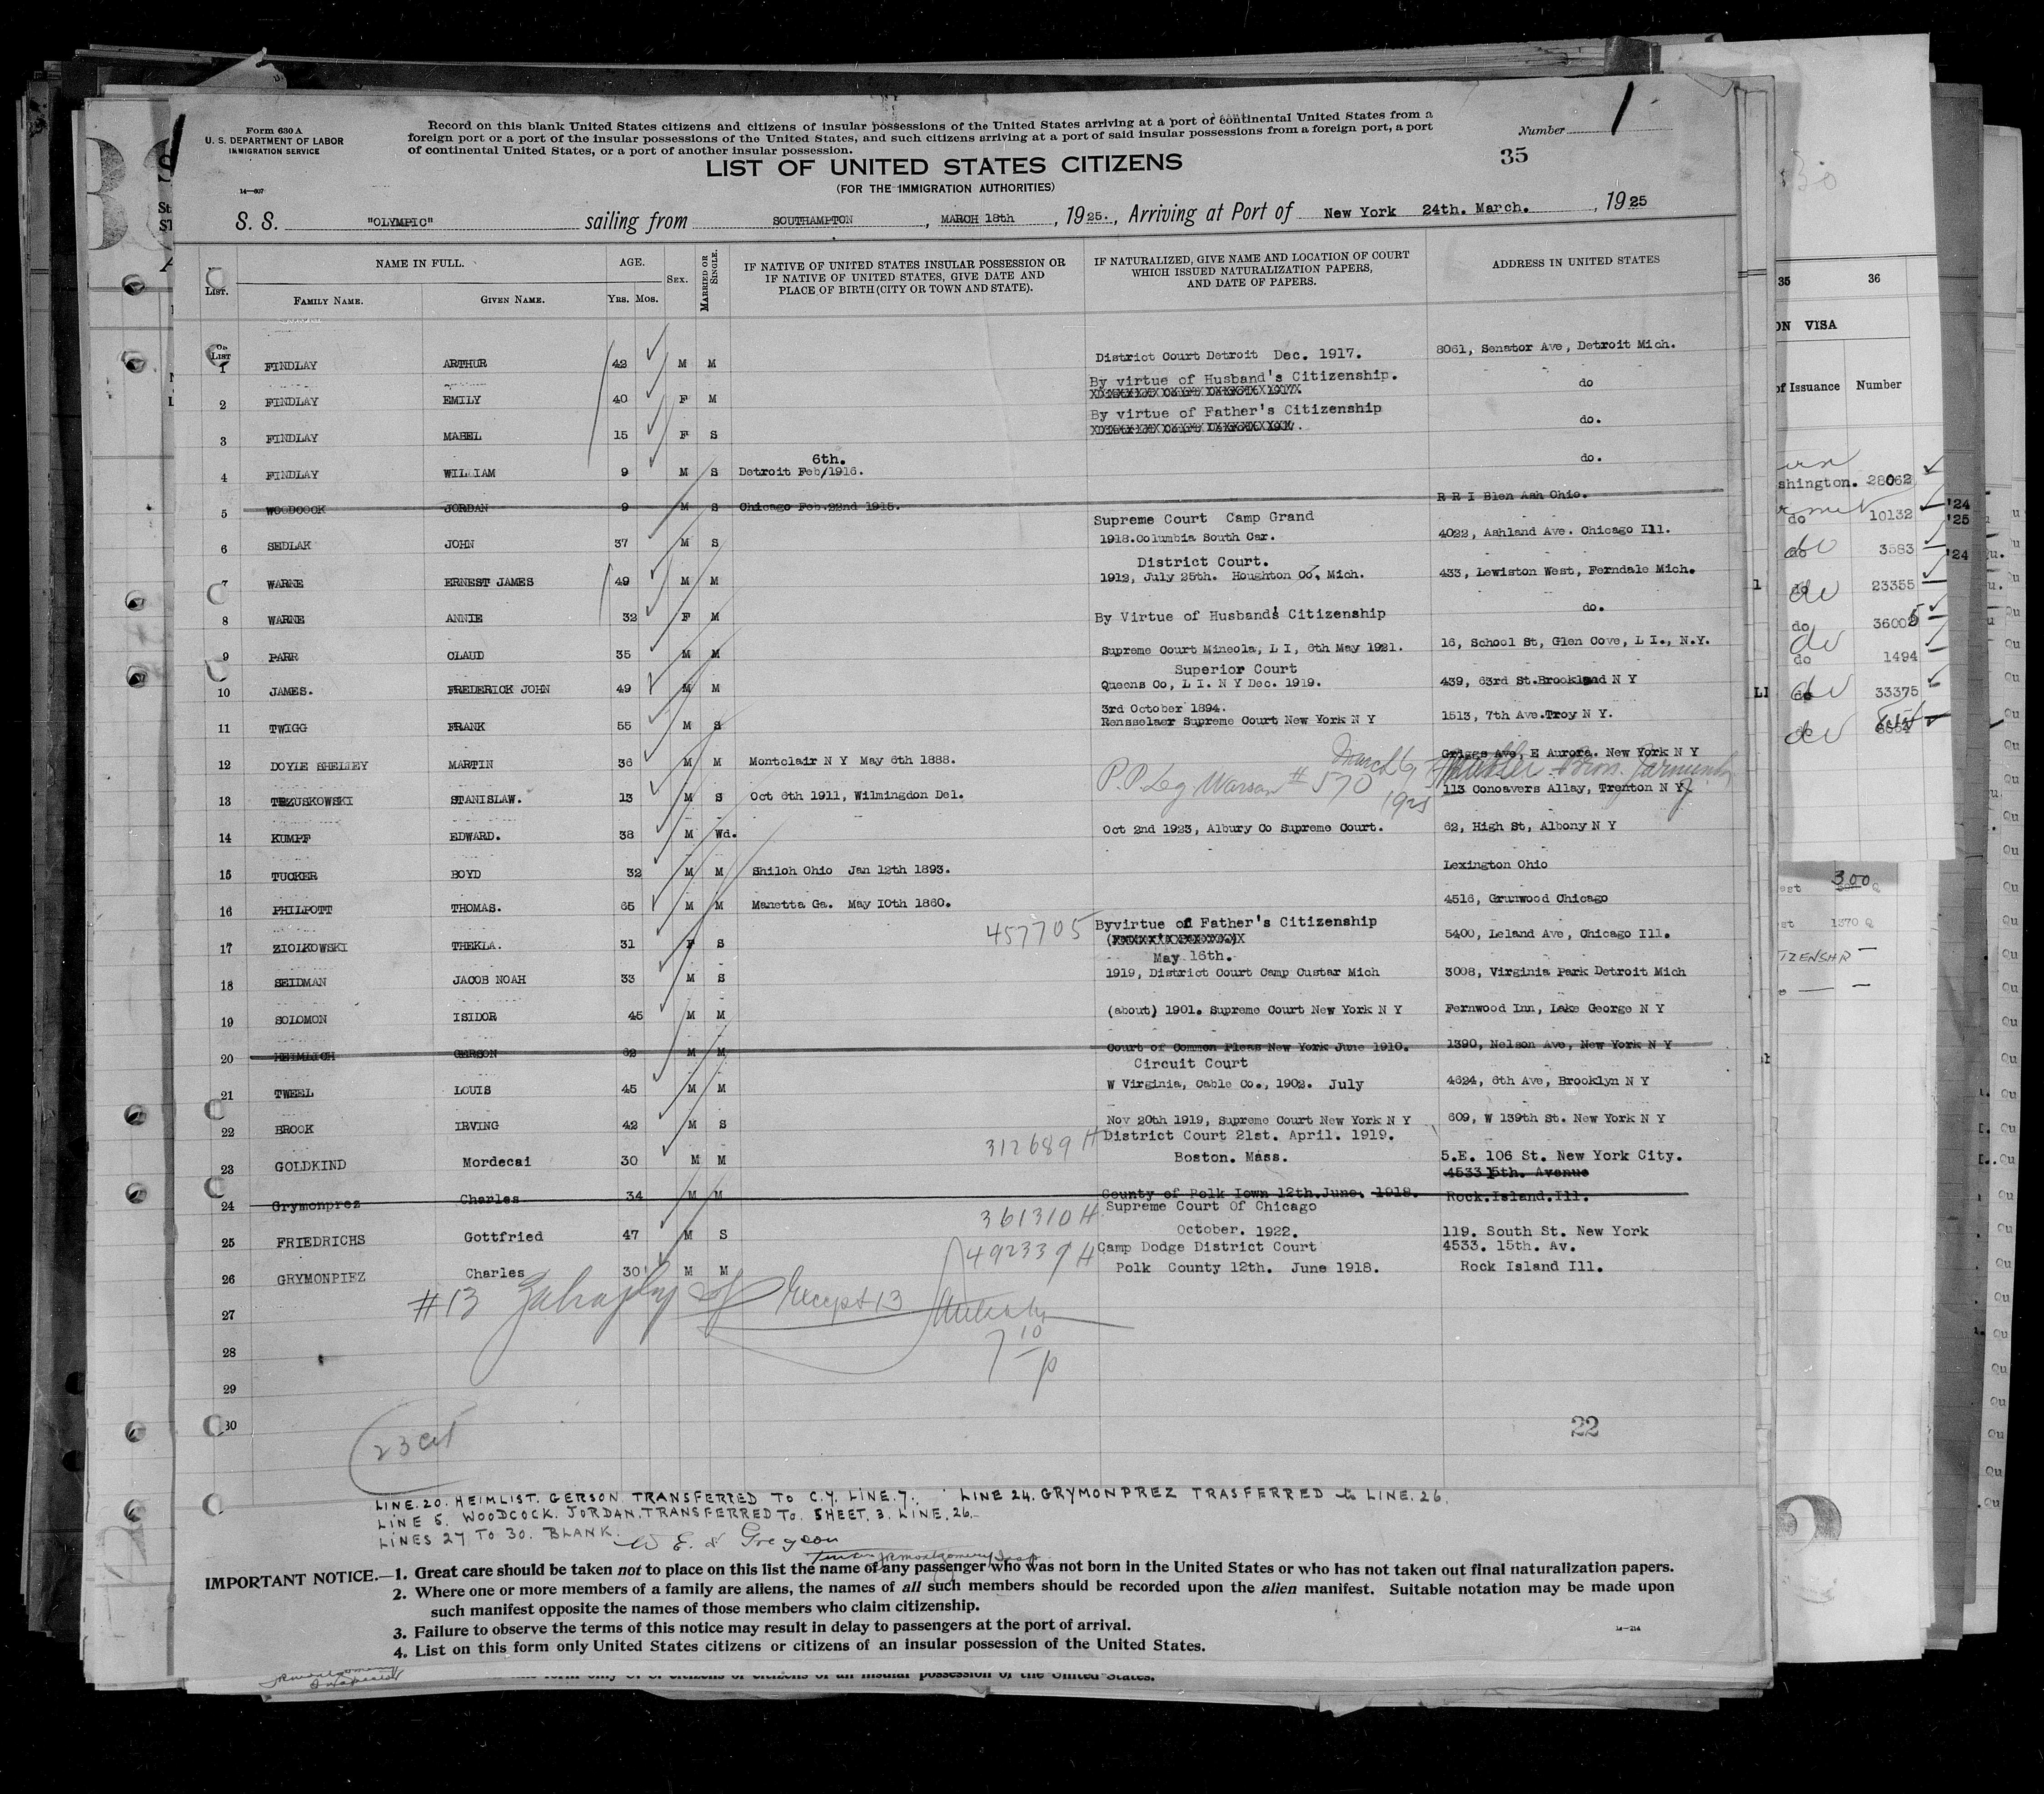 Form 630 A
U. S. DEPARTMENT OF LABOR
IMMIGRATION SERVICE
14—607
Record on this blank United States citizens and citizens of insular possessions of the United States arriving at a port of continental United States from a
foreign port or a port of the insular possessions of the United States, and such citizens arriving at a port of said insular possessions from a foreign port, a port
of continental United States, or a port of another insular possession.
Number 1
35
LIST OF UNITED STATES CITIZENS
(FOR THE IMMIGRATION AUTHORITIES)
S. S. "OLYMPIC" sailing from SOUTHAMPTON, MARCH 18th, 1925., Arriving at Port of New York 24th. March., 1925
LIST. NAME IN FULL. AGE. SEX. MARRIED OR SINGLE. IF NATIVE OF UNITED STATES INSULAR POSSESSION OR IF NATIVE OF UNITED STATES, GIVE DATE AND PLACE OF BIRTH (CITY OR TOWN AND STATE). IF NATURALIZED, GIVE NAME AND LOCATION OF COURT WHICH ISSUED NATURALIZATION PAPERS, AND DATE OF PAPERS. ADDRESS IN UNITED STATES
FAMILY NAME. GIVEN NAME. Yrs. Mos.
1 FINDLAY ARTHUR 42 M M District Court Detroit Dec. 1917. 8061, Senator Ave, Detroit Mich.
By virtue of Husband's Citizenship.
2 FINDLAY EMILY 40 F M do
By virtue of Father's Citizenship
3 FINDLAY MABEL 15 F S do.
6th.
4 FINDLAY WILLIAM 9 M S Detroit Feb/1916. do.
5 WOODCOCK JORDAN 9 M S Chicago Feb.22nd 1915. R R I Blen Ash Ohio.
Supreme Court Camp Grand
6 SEDLAK JOHN 37 M S 1918.Columbia South Car. 4022, Ashland Ave. Chicago Ill.
District Court.
7 WARNE ERNEST JAMES 49 M M 1912, July 25th. Houghton Co, Mich. 433, Lewiston West, Ferndale Mich.
8 WARNE ANNIE 32 F M By Virtue of Husband's Citizenship do.
9 PARR CLAUD 35 M M Supreme Court Mineola, L I, 6th May 1921. 16, School St, Glen Cove, L I., N.Y.
Superior Court
10 JAMES. FREDERICK JOHN 49 M M Queens Co, L I. N Y Dec. 1919. 439, 63rd St.Brooklând N Y
3rd October 1894.
11 TWIGG FRANK 55 M S Rensselaer Supreme Court New York N Y 1513, 7th Ave.Troy N Y.
12 DOYLE SHELLEY MARTIN 36 M M Montclair N Y May 6th 1888. Griggs Ave, E Aurora. New York N Y
P.P. Leg Warsaw # 570 March 6, 1925
13 TRZUSKOWSKI STANISLAW. 13 M S Oct 6th 1911, Wilmingdon Del. 113 Conoavers Allay, Trenton N Y
14 KUMPF EDWARD. 38 M Wd. Oct 2nd 1923, Albury Co Supreme Court. 62, High St, Albony N Y
15 TUCKER BOYD 32 M M Shiloh Ohio Jan 12th 1893. Lexington Ohio
16 PHILPOTT THOMAS. 65 M M Manetta Ga. May 10th 1860. 4516, Grunwood Chicago
457705 Byvirtue of Father's Citizenship
17 ZIOLKOWSKI THEKLA. 31 F S 5400, Leland Ave, Chicago Ill.
May 16th.
18 SEIDMAN JACOB NOAH 33 M S 1919, District Court Camp Custar Mich 3008, Virginia Park Detroit Mich
19 SOLOMON ISIDOR 45 M M (about) 1901. Supreme Court New York N Y Fernwood Inn, Lake George N Y
20 HEIMLICH GERSON 62 M M Court of Common Pleas New York June 1910. 1390, Nelson Ave, New York N Y
Circuit Court
21 TWEEL LOUIS 45 M M W Virginia, Cable Co., 1902. July 4624, 6th Ave, Brooklyn N Y
22 BROOK IRVING 42 M S Nov 20th 1919, Supreme Court New York N Y 609, W 139th St. New York N Y
312689 H District Court 21st. April. 1919.
23 GOLDKIND Mordecai 30 M M Boston. Mass. 5.E. 106 St. New York City.
4533 15th. Avenue
24 Grymonprez Charles 34 M M County of Polk Iown 12th.June. 1918. Rock.Island.Ill.
361310 H Supreme Court Of Chicago
25 FRIEDRICHS Gottfried 47 M S October. 1922. 119. South St. New York
492339 H Camp Dodge District Court 4533. 15th. Av.
26 GRYMONPIEZ Charles 30 M M Polk County 12th. June 1918. Rock Island Ill.
#13 except 13
27
28
29
30
23 cit
22
LINE.20. HEIMLIST. GERSON TRANSFERRED TO C.Y. LINE.7. LINE 24. GRYMONPREZ TRASFERRED to LINE.26.
LINE 5. WOODCOCK. JORDAN. TRANSFERRED TO. SHEET. 3. LINE. 26.
LINES 27 TO 30. BLANK.
IMPORTANT NOTICE.—1. Great care should be taken not to place on this list the name of any passenger who was not born in the United States or who has not taken out final naturalization papers.
2. Where one or more members of a family are aliens, the names of all such members should be recorded upon the alien manifest. Suitable notation may be made upon
such manifest opposite the names of those members who claim citizenship.
3. Failure to observe the terms of this notice may result in delay to passengers at the port of arrival.
4. List on this form only United States citizens or citizens of an insular possession of the United States.
14—214
35 36
ON VISA
of Issuance Number
shington. 28062
do 10132
'24
'25
3583
'24
23355
do 36005
do 1494
33375
300
1370
TIZENSHP